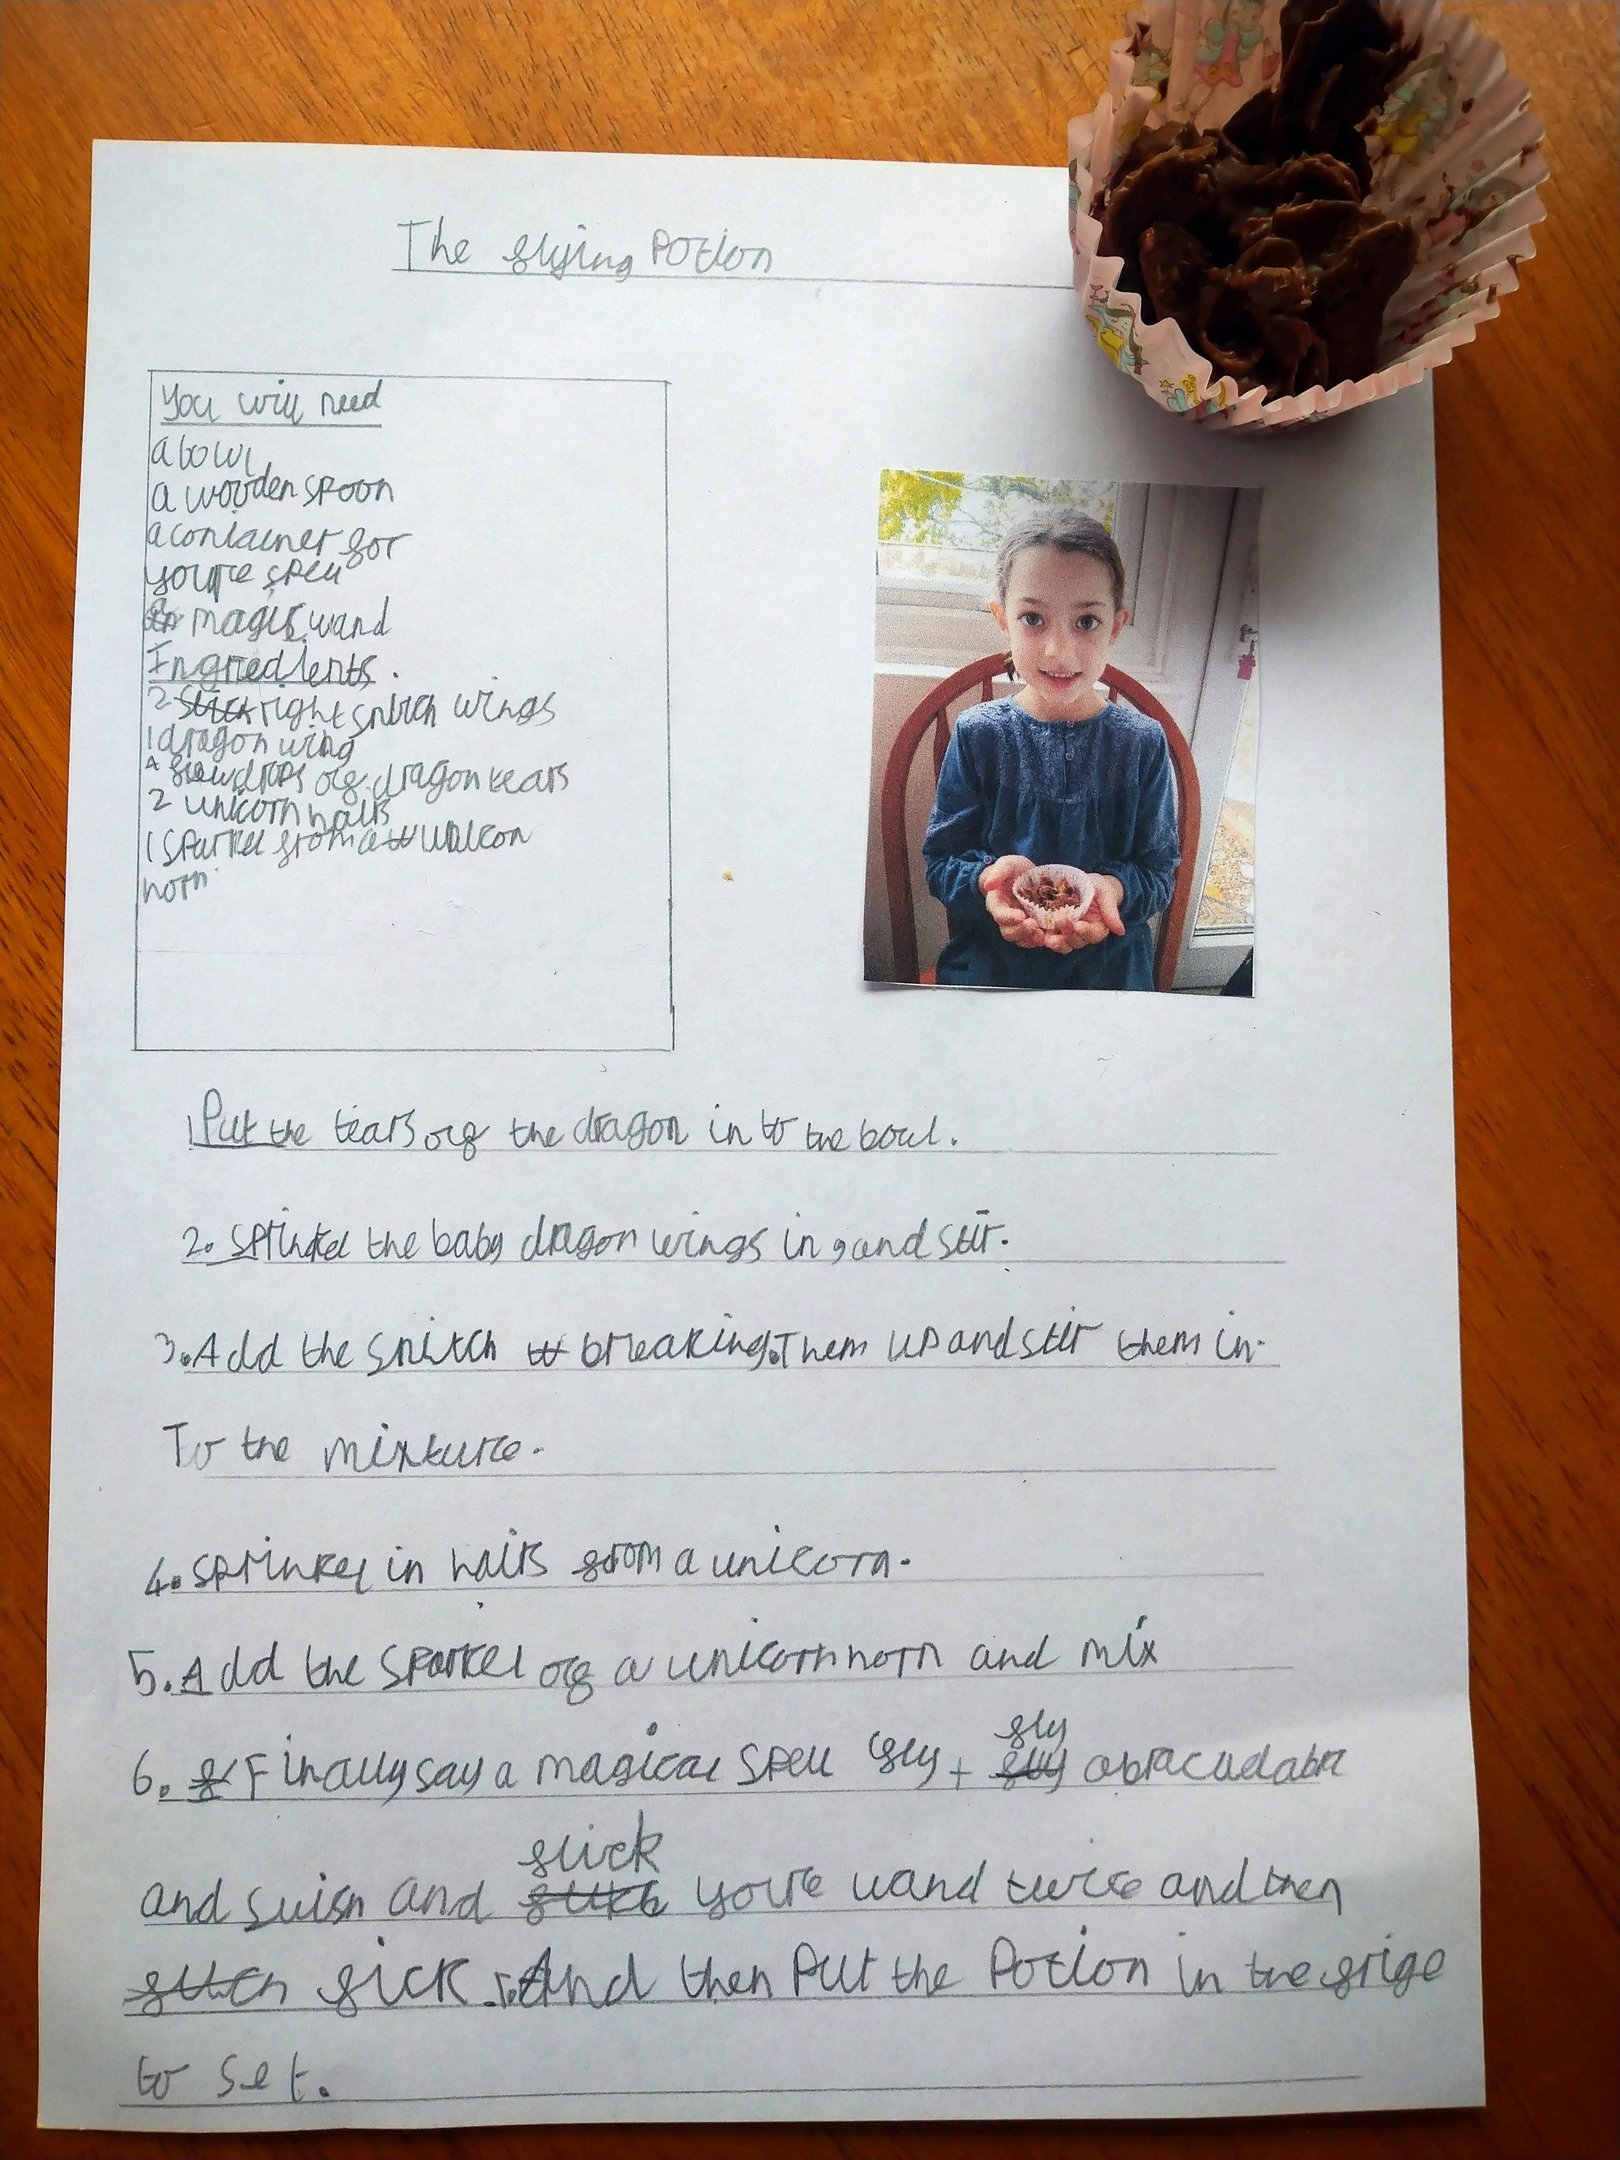 The flying Potion
You will need
a bowl
a wooden spoon
a container for
youre spell
magic wand
Ingredients.
2 right snitch wings
1 dragon wing
4 drops of dragon tears
2 unicorn hairs
1 sparkel from a unicon
horn
1 Put the tears of the dragon in to the bowl.
2. Sprinkel the baby dragon wings in, and stir.
3. Add the snitch breaking. Them up and stir them in.
To the mixture.
4. Sprinkel in hairs from a unicorn.
5. Add the sparkel of a unicorn horn and mix
6. Finally say a magical spell fly + fly abracudabra
and swish and flick youre wand twice and then
flick. And then Put the Potion in the frige
to set.